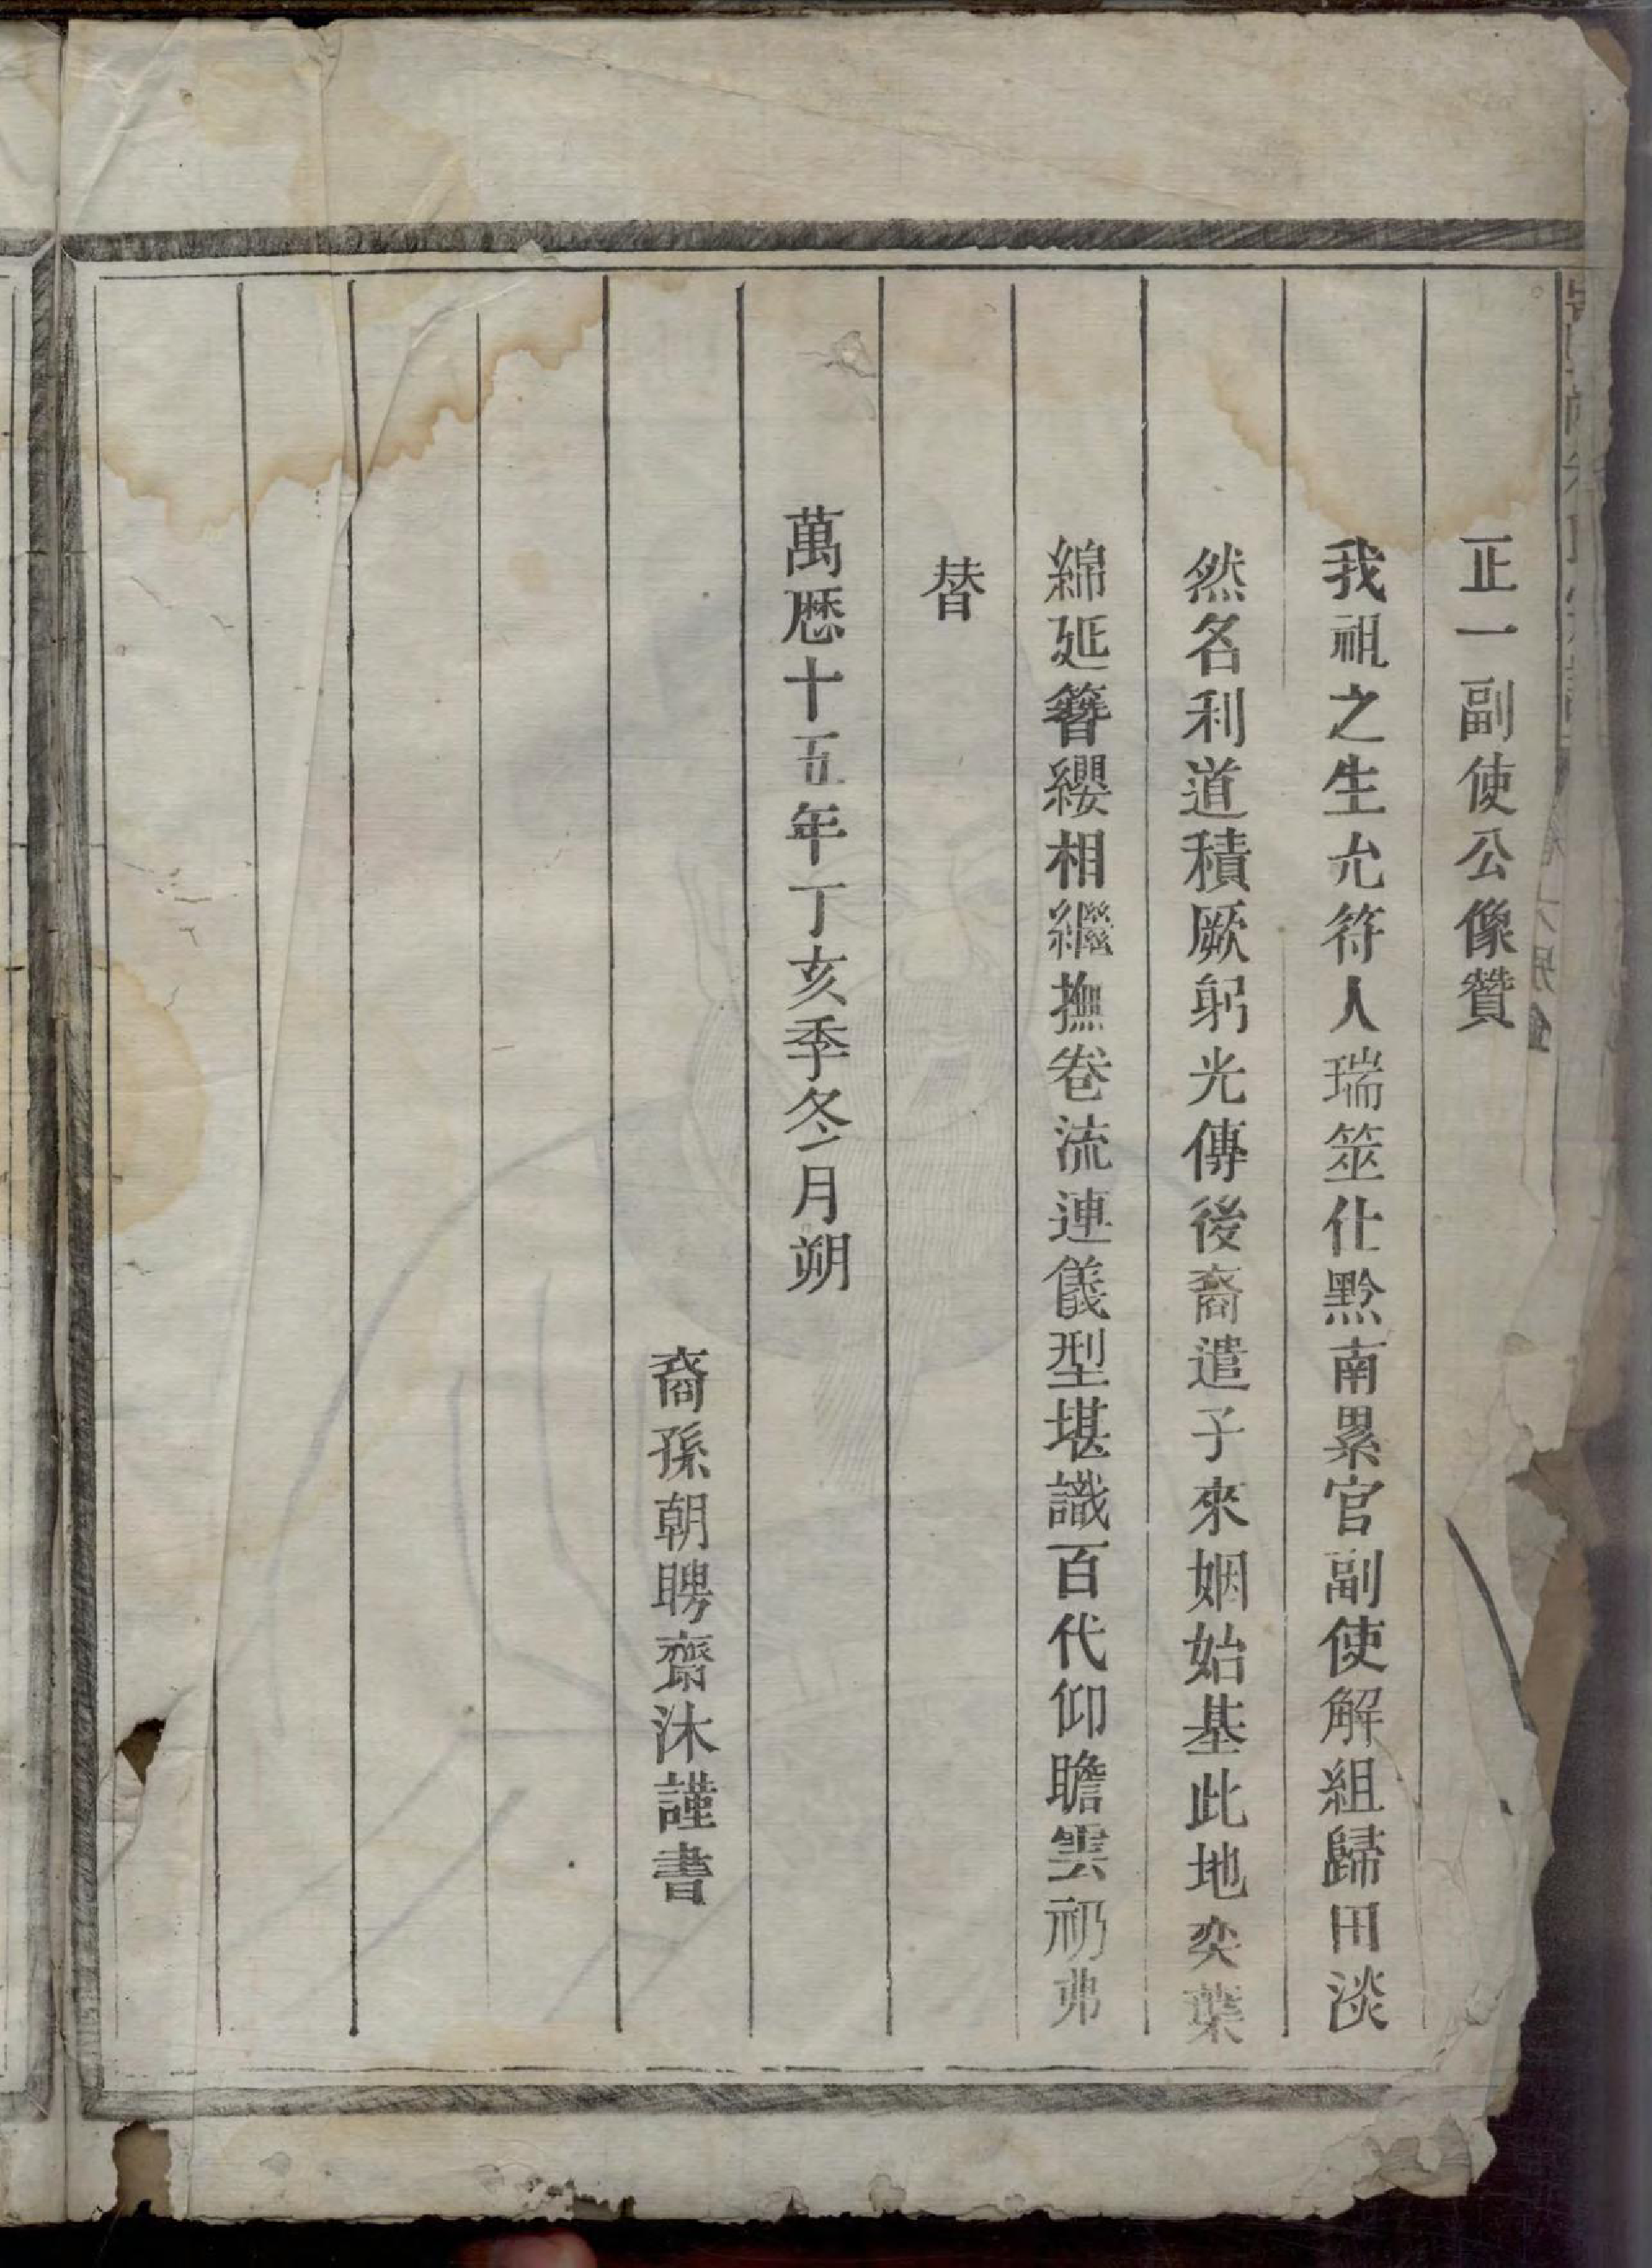 正一副使公像贊
我祖之生允符人瑞筮仕黔南累官副使解組歸田淡
然名利道積厥躬光傳後裔遣子來姻始基此地奕葉
綿延簪纓相繼撫卷流連儀型堪識百代仰瞻雲礽弗
替
萬歷十五年丁亥季冬月朔
裔孫朝聘齋沐謹書